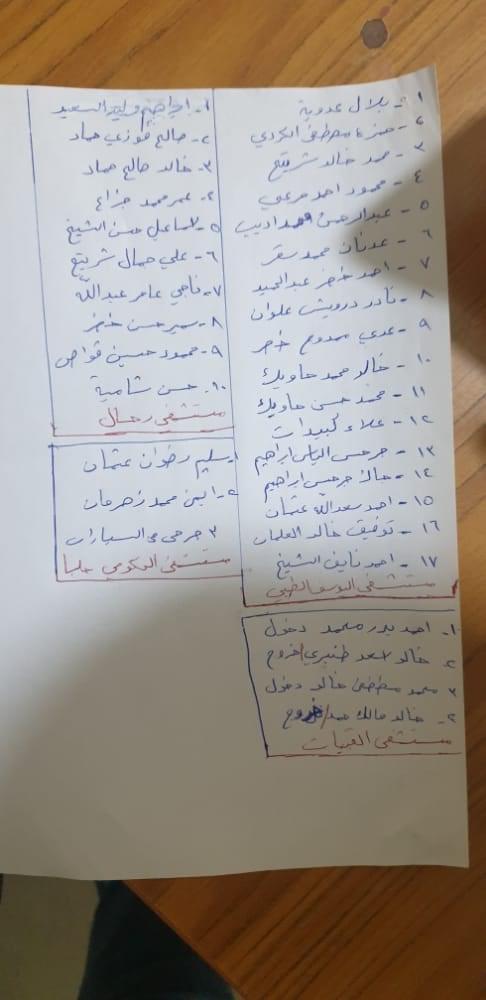 ١- بلال عدوية
٢- حمزة مصطفى الكردي
٣- محمد خالد شريتح
٤- محمود احمد مرعي
٥- عبدالرحمن محمد اديب
٦- عدنان محمد سقر
٧- احمد خضر عبدالحميد
٨- نادر درويش علوان
٩- عدي ممدوح خضر
١٠- خالد محمد حاويك
١١- محمد حسن حاويك
١٢- علاء كبيدات
١٣- جرجس الياس ابراهيم
١٤- مارك جرجس ابراهيم
١٥- احمد سعدالله عثمان
١٦- توفيق خالد العلمان
١٧- احمد نايف الشيخ
مستشفى اليوسف الطبي
١- ابراهيم وليد السعيد
٢- صالح فوزي حماد
٣- خالد صالح حماد
٤- عمر محمد جزاع
٥- اسماعيل حسن الشيخ
٦- علي جمال شريتح
٧- ناجي عامر عبدالله
٨- سمير حسن خضر
٩- محمود حسين قواص
١٠- حسن شامية
مستشفى رحال
١- سليم رضوان عثمان
٢- ايمن محمد زهرمان
٣ جرحى مع السيارات
مستشفى الحكومي حلبا
١- احمد بدر محمد دخول
٢- خالد اسعد طنبري/خروج
٣ محمد مصطفى خالد دخول
٤- خالد مالك حمد/خروج
مستشفى القبيات